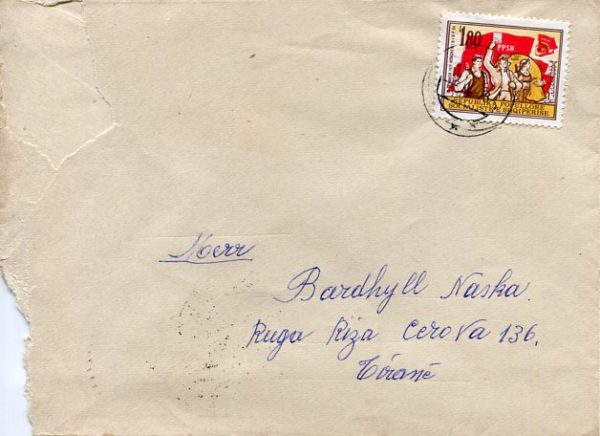 1.80
PPSH
REPUBLIKA POPULLORE
SOCIALISTE E SHQIPERISE
Merr
Bardhyll Naska.
Ruga Riza Cerova 136.
Tiranë